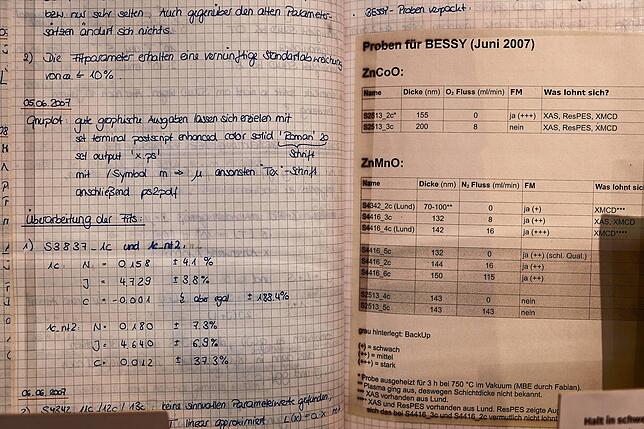 bzw. nur sehr selten. Auch gegenüber den alten Parameter-
sätzen ändert sich nichts.
2) Die Fitparameter erhalten eine vernünftige Standardabweichung
von ca. ± 10%.
05.06.2007
Gnuplot: gute graphische Ausgaben lassen sich erzielen mit
set terminal postscript enhanced color solid "Roman" 20
set output 'x.ps'
Schrift
mit {/Symbol m} → μ ansonsten "Tex"-Schrift
anschließend ps2pdf
Überarbeitung der Fits:
1) S3837_1c und 1c_nt2:
1c: N = 0,158 ± 4.1 %
J = 4,729 ± 3.8%
C = -0.001 aber egal ± 188.4%
1c_nt2: N = 0,180 ± 7.3%
J = 4.640 ± 6.9%
C = 0.012 ± 37.3%
06.06.2007
S4242 11c/12c/13c: keine sinnvollen Parameterwerte gefunden,
linear approximiert
BESSY-Proben verpackt.
Proben für BESSY (Juni 2007)
ZnCoO:
Name Dicke (nm) O₂ Fluss (ml/min) FM Was lohnt sich?
S2513_2c* 155 0 ja (+++) XAS, ResPES, XMCD
S2513_3c 200 8 nein XAS, ResPES, XMCD
ZnMnO:
Name Dicke (nm) N₂ Fluss (ml/min) FM Was lohnt sich
S4342_2c (Lund) 70-100** 0 ja (+) XMCD***
S4416_3c 132 8 ja (++) XAS, XMCD
S4416_4c (Lund) 142 16 ja (+++) XMCD****
S4416_5c 132 0 ja (++) (schl. Qual.)
S4416_2c 144 16 ja (+++)
S4416_6c 150 115 ja (+++)
S2513_4c 143 0 nein
S2513_5c 143 143 nein
grau hinterlegt: BackUp
(+) = schwach
(++) = mittel
(+++) = stark
* Probe ausgeheizt für 3 h bei 750 °C im Vakuum (MBE durch Fabian).
** Plasma ging aus, deswegen Schichtdicke nicht bekannt.
*** XAS vorhanden aus Lund.
**** XAS und ResPES vorhanden aus Lund. ResPES zeigte
sich das bei S4416_3c und S4416_2c vermutlich nicht
Halt in schw